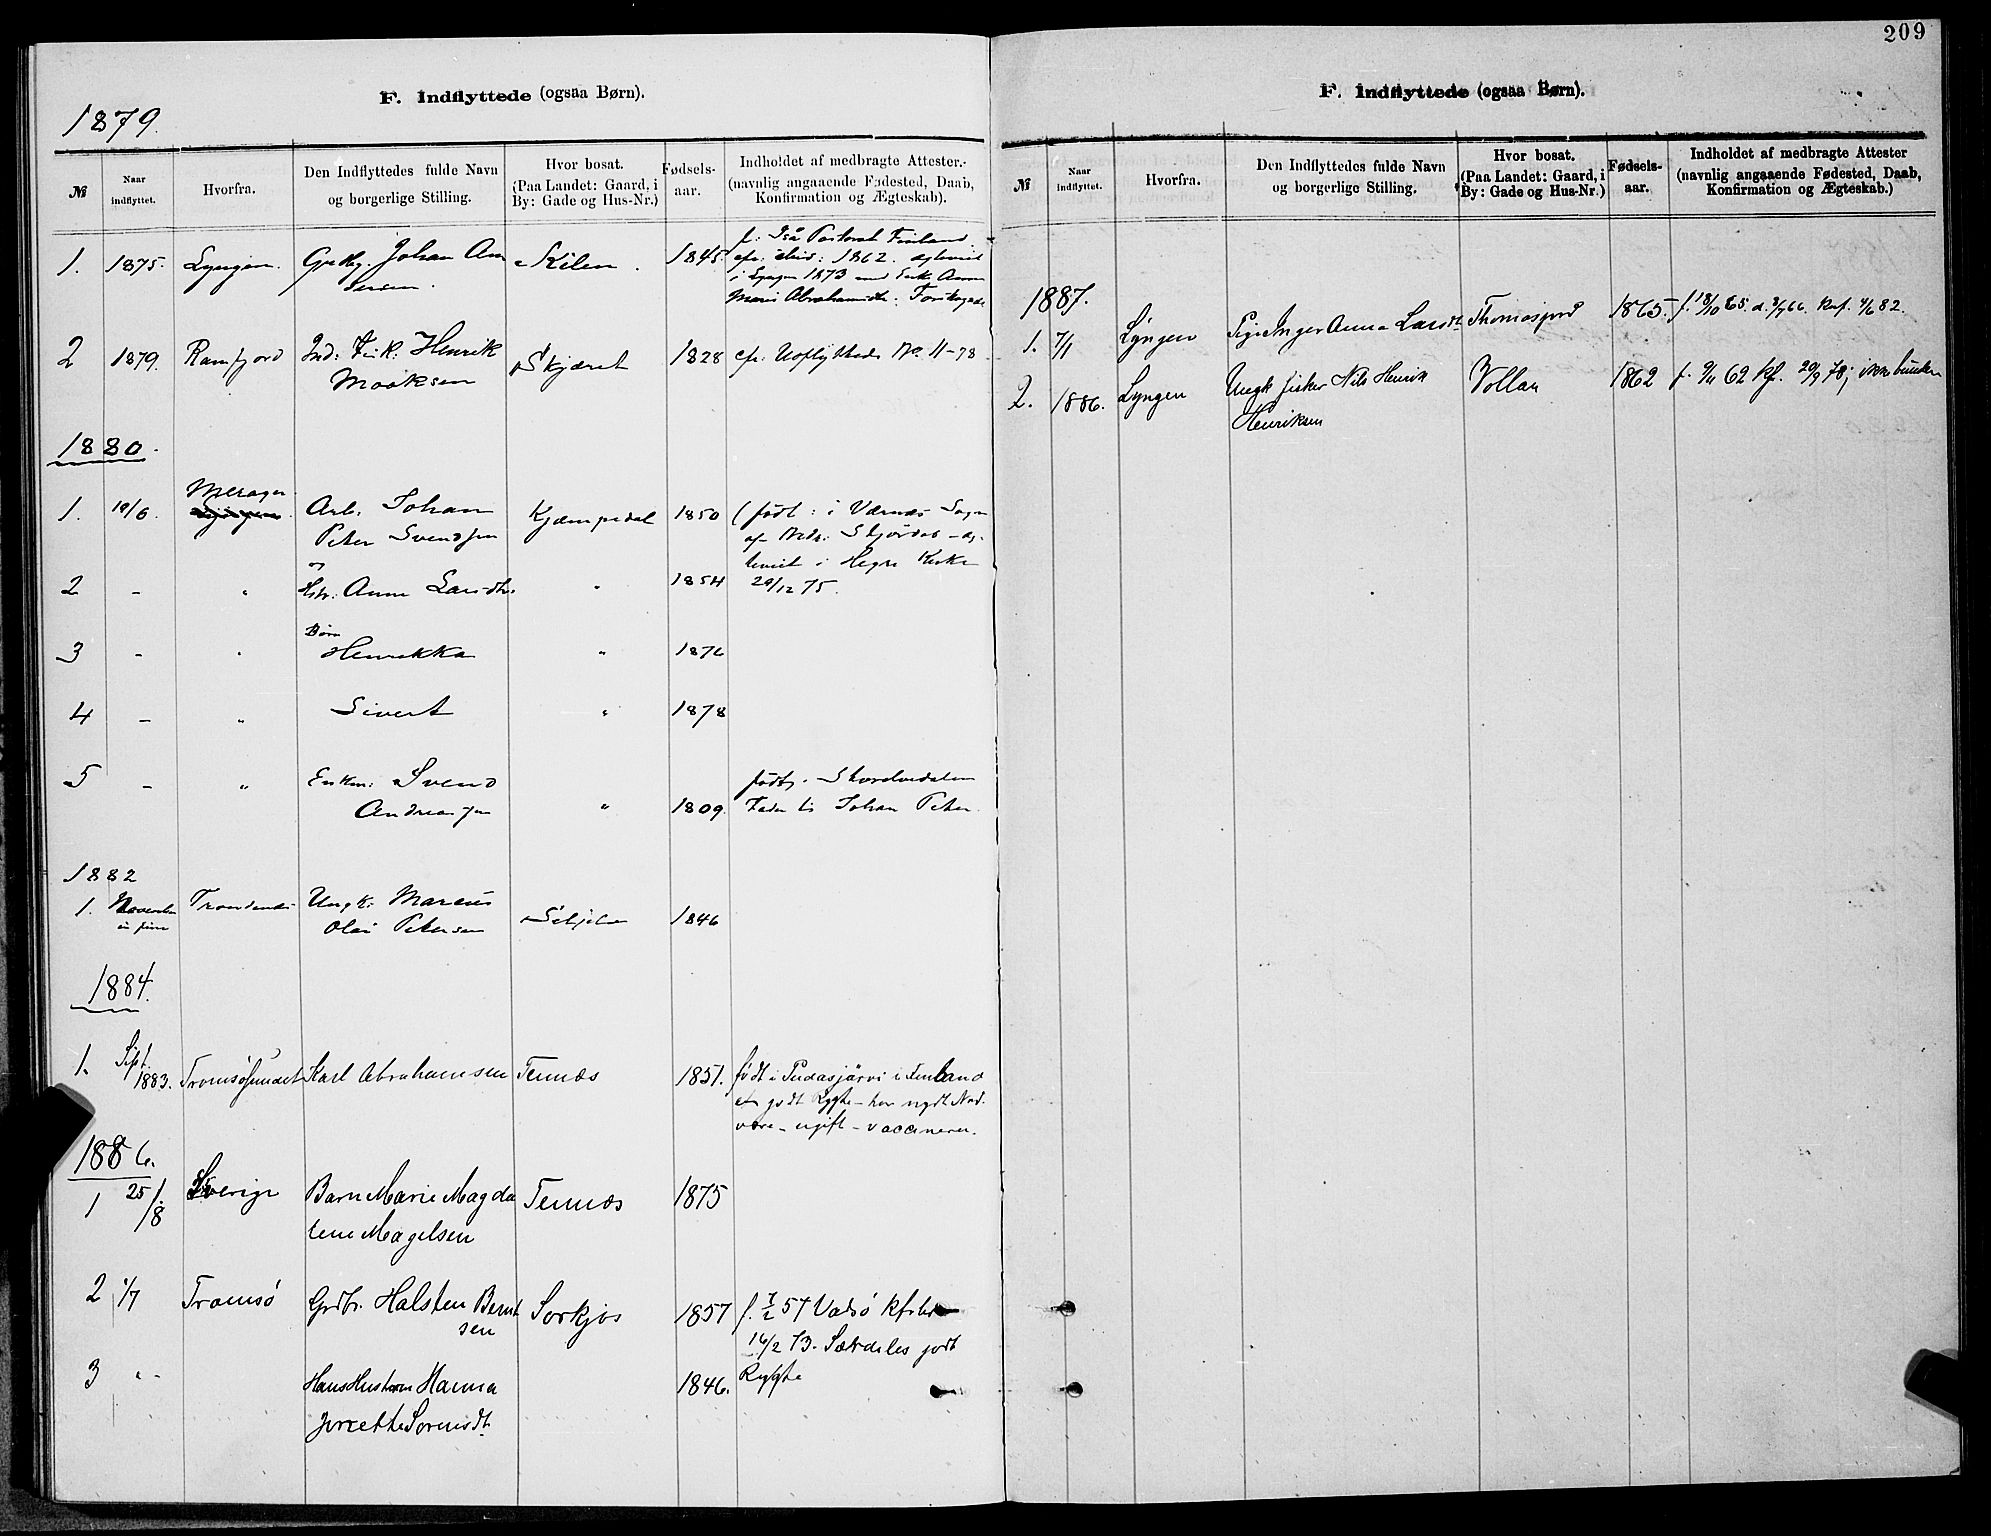 F. Indflyttede (ogsaa Børn).
1879.
№
Naar indflyttet.
Hvorfra.
Den Indflyttedes fulde Navn
og borgerlige Stilling.
Hvor bosat.
(Paa Landet: Gaard, i
By: Gade og Hus-Nr.)
Fødsels-
aar.
Indholdet af medbragte Attester.
(navnlig angaaende Fødested, Daab,
Konfirmation og Ægteskab).
1. 1875. Lyngen. Johan An Kilen. 1845 f: Pastorat Finland
sersen. 1862.
i Lyngen 1873 Anna
Marie Abrahamsdtr.
2 1879. Ramfjord Ind: Henrik Skjæret 1828 cfr. Udflyttede No. 11-78
Maaksen
1880.
1. 10/6. Merager Arb. Johan Kjæmpedal 1850 (født: i Værnæs Sogn
Peter Svendsen
og
i Hegre Kirke
2 - " Anne Larsdtr. " 1854 29/12 75.
Børn
3 - " Henrikka " 1876
4 - " Sivert " 1878
5 - " Enkm: Svend født
Andreassen " 1809. Fader til Johan Peter.
1882
1. Novemb. Trondenæs Ungk. Marcus
Olai Petersen 1846
1884.
1. Sept.
1883. Tromsøsundet Karl Abrahamsen Tennæs 1851. født i Pudasjärvi i Finland
godt Rygte - har nydt Nad-
vere - ugift - vaccineret.
1886.
1 25/8 Sverige Barn Marie Magda Tennæs 1875
lene Magelsen
2 1/7 Tromsø Grdbr. Halsten Bernt Sørkjos 1857 f. 7/2 57 Vadsø
sen 16/2 73. Særdeles godt
3 " - Hans Hustru Hanna 1846. Rygte
Jorette Sørensdt.
209
F. Indflyttede (ogsaa Børn).
№
Naar indflyttet.
Hvorfra.
Den Indflyttedes fulde Navn
og borgerlige Stilling.
Hvor bosat.
(Paa Landet: Gaard, i
By: Gade og Hus-Nr.)
Fødsels-
aar.
Indholdet af medbragte Attester
(navnlig angaaende Fødested, Daab,
Konfirmation og Ægteskab.)
1887.
1. 7/1 Lyngen Pige Inger Anna Larsdt. Thomasjord 1865. f. 18/10 65. d. 3/4 66. Knf. 4/6 82.
2. 1886. Lyngen Ungk fisker Nils Henrik Vollan 1862 f. 9/11 62 kf. 29/9 78; ikke bunden
Henriksen